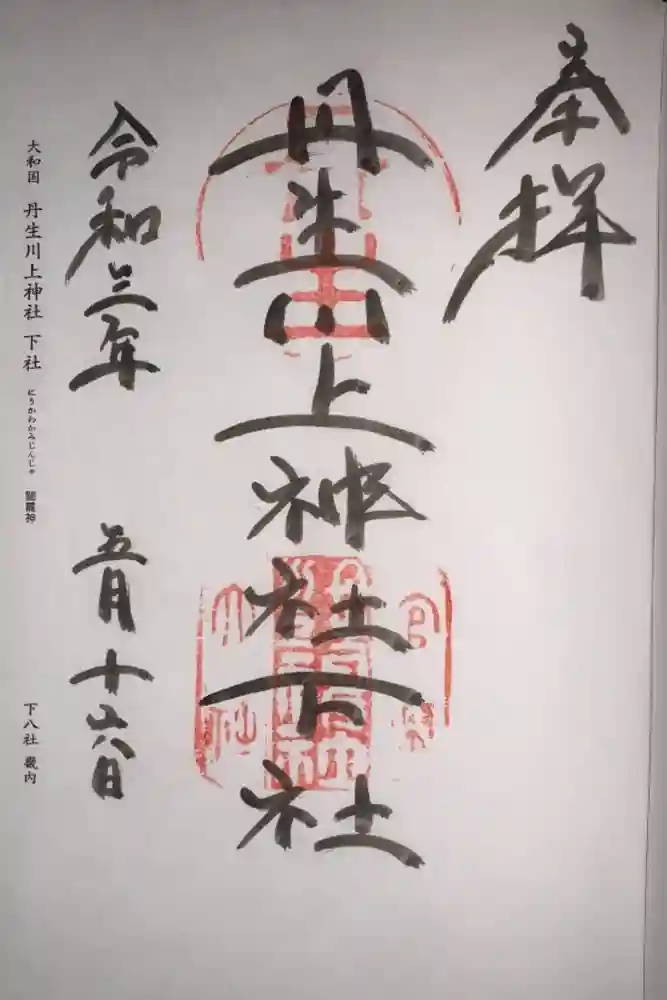 奉拝
丹生川上神社下社
令和三年 五月十六日
大和国 丹生川上神社 下社 にうかわかみじんじゃ 闇龗神 下八社 畿内